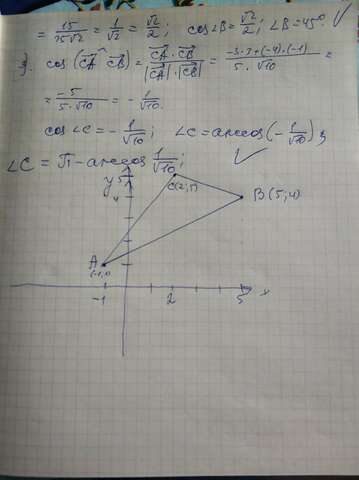 = 15/15√2 = 1/√2 = √2/2; cos∠B = √2/2; ∠B = 45°
3). cos(CA^CB) = CA · CB / |CA| · |CB| = -3·3+(-4)·(-1) / 5·√10 =
= -5/5·√10 = -1/√10.
cos∠C = -1/√10; ∠C = arccos(-1/√10);
∠C = π - arccos 1/√10;
y 5
C(2;5)
4
B(5;4)
A
(-1;1)
-1 2 5 x